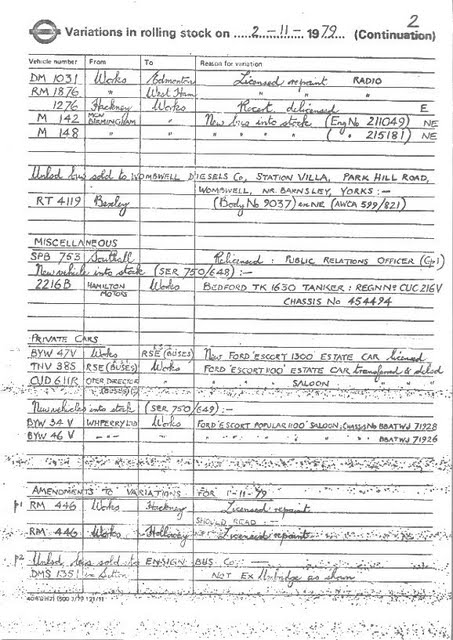 2
Variations in rolling stock on 2-11-1979 (Continuation)
Vehicle number From To Reason for variation
DM 1031 Works Edmonton Licensed repaint RADIO
RM 1876 " West Ham "
1276 Hackney Works Recert. delicensed E
M 142 MCW BIRMINGHAM " New bus into stock (Eng No 211049) NE
M 148 " " " " " " ( " 215181) NE
Unlicd bus sold to WOMBWELL DIESELS Co, STATION VILLA, PARK HILL ROAD,
WOMBWELL, NR. BARNSLEY, YORKS :-
RT 4119 Bexley (Body No 9037) ex NE (AWCA 599/821)
MISCELLANEOUS
SPB 753 Southall Relicensed : PUBLIC RELATIONS OFFICER (Gp1)
New vehicle into stock (SER 750/648) :-
2216B HAMILTON MOTORS Works BEDFORD TK 1630 TANKER : REGN No CUC 216V
CHASSIS No 454494
PRIVATE CARS
BYW 47V Works RSE (BUSES) New FORD 'ESCORT 1300' ESTATE CAR licensed
TNV 38S RSE (BUSES) Works FORD 'ESCORT 1100' ESTATE CAR transferred & delicd
OJD 611R OPER. DIRECTOR (BUSES) " " " SALOON " " "
New vehicles into stock (SER 750/649) :-
BYW 34 V WH PERRY LTD Works FORD 'ESCORT POPULAR 1100' SALOON; CHASSIS No BBATWJ 71928
BYW 46 V " " " " " " " " " BBATWJ 71926
AMENDMENTS TO VARIATIONS FOR 1-11-79
P1 RM 446 Works Hackney Licensed repaint
SHOULD READ :-
RM 446 Works Holloway Licensed repaint
P2 Unlicd bus sold to ENSIGN BUS Co :-
DMS 1351 ex Sutton NOT EX Uxbridge as shown